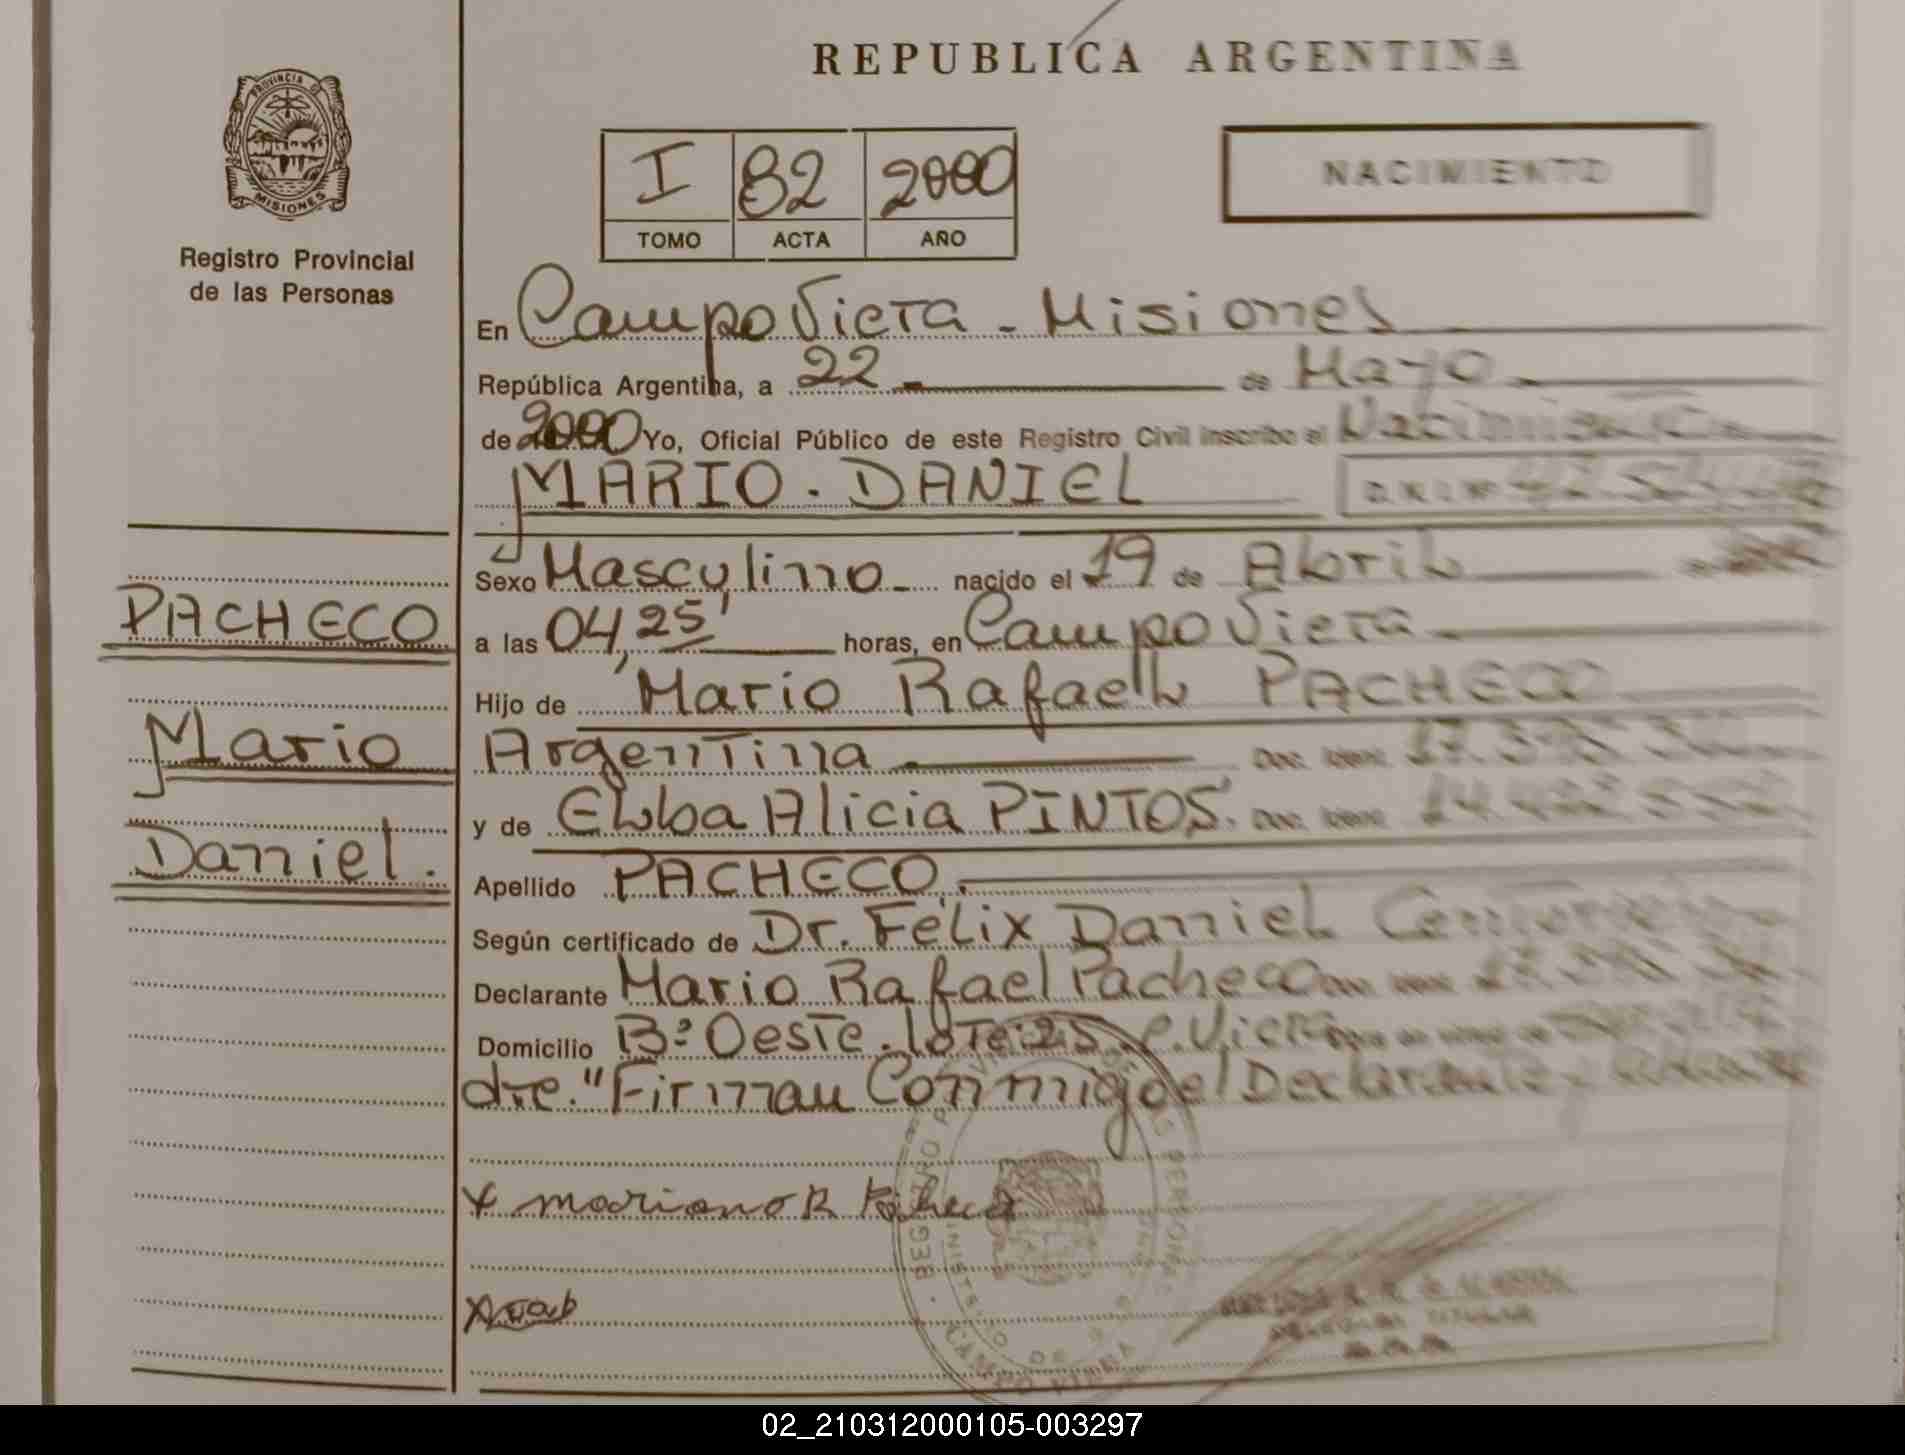 REPUBLICA ARGENTINA
PROVINCIA DE
MISIONES
Registro Provincial
de las Personas
I 82 2000
TOMO ACTA AÑO
NACIMIENTO
En Campo Viera - Misiones
República Argentina, a 22 de Mayo
de 2000 Yo, Oficial Público de este Registro Civil inscribo el Nacimiento
MARIO - DANIEL D.N.I. Nº
Sexo Masculino nacido el 19 de Abril
a las 04,25' horas, en Campo Viera
Hijo de Mario Rafael PACHECO
Argentina Doc. Ident.
y de Elba Alicia PINTOS. Doc. Ident.
Apellido PACHECO.
Según certificado de Dr. Félix Daniel
Declarante Mario Rafael Pacheco Doc. Ident.
Domicilio Bº Oeste. lote: 25. C. Viera
dre." Firman Conmigo el Declarante y
PACHECO
Mario
Daniel.
CAMPO VIERA
02_210312000105-003297